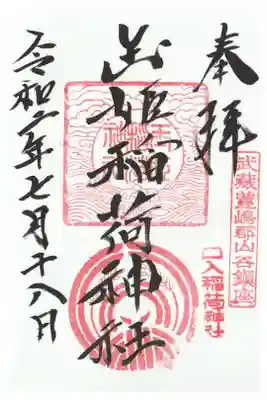 奉拝
武蔵豊嶋郡山谷鎮座
口入稲荷神社
玉姫稲荷神社
令和二年七月十八日